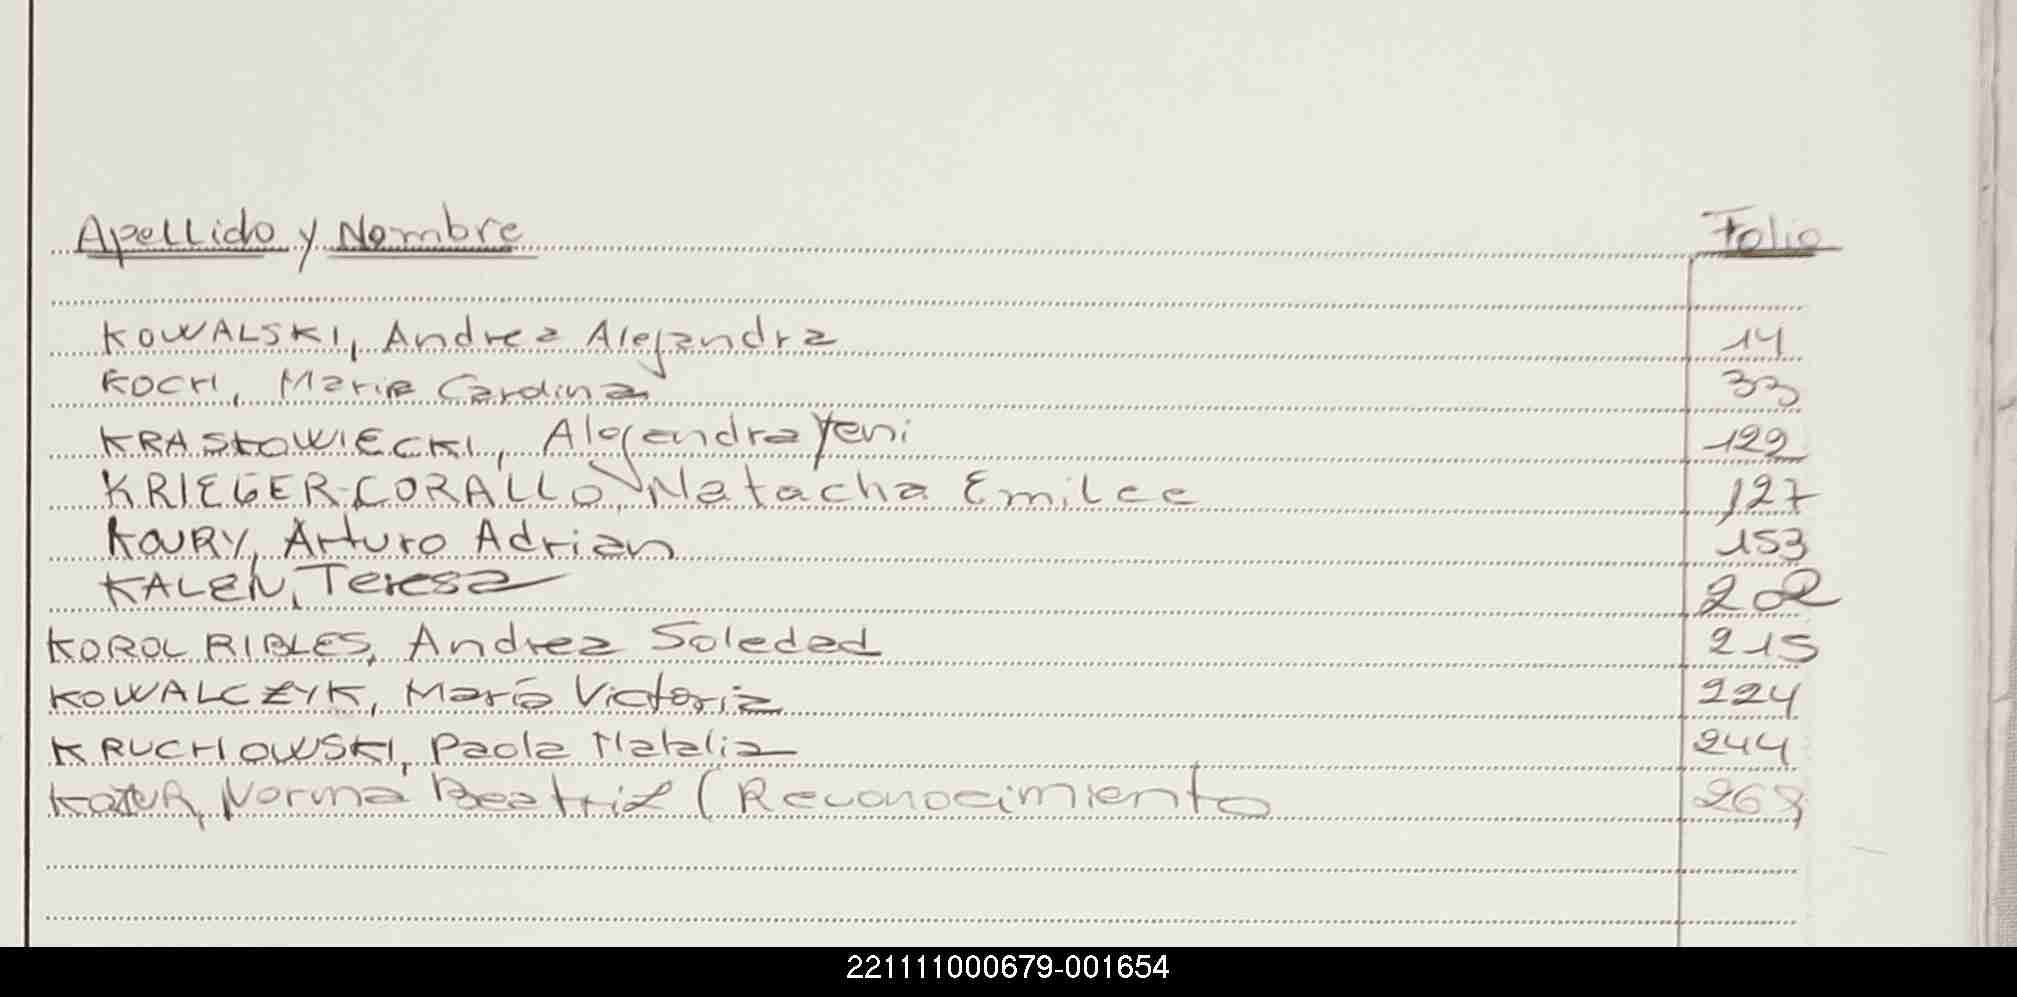 Apellido y Nombre Folio
KOWALSKI, Andrea Alejandra 14
KOCH, Maria Cardina 33
KRASKOWIECKI, Alejandra Yeni 122
KRIEGER-CORALLO, Natacha Emilce 127
KOURY, Arturo Adrian 153
KALEN, Teresa 202
KOROL RIBLES, Andrea Soledad 215
KOWALCZYK, María Victoria 224
KRUCHOWSKI, Paola Natalia 244
Norma Beatriz (Reconocimiento
221111000679-001654